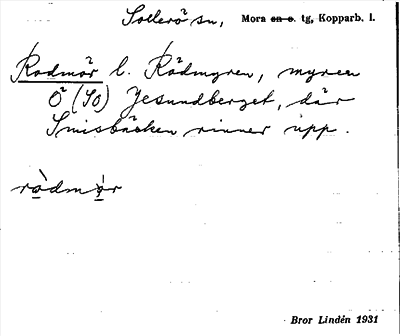 Sollerö sn, Mora sn o. tg, Kopparb. l.
Rodmör l. Rödmyren, myren
Ö (SO) Jesundberget, där
Smisbäcken rinner upp.
ròdmọr
Bror Lindén 1931